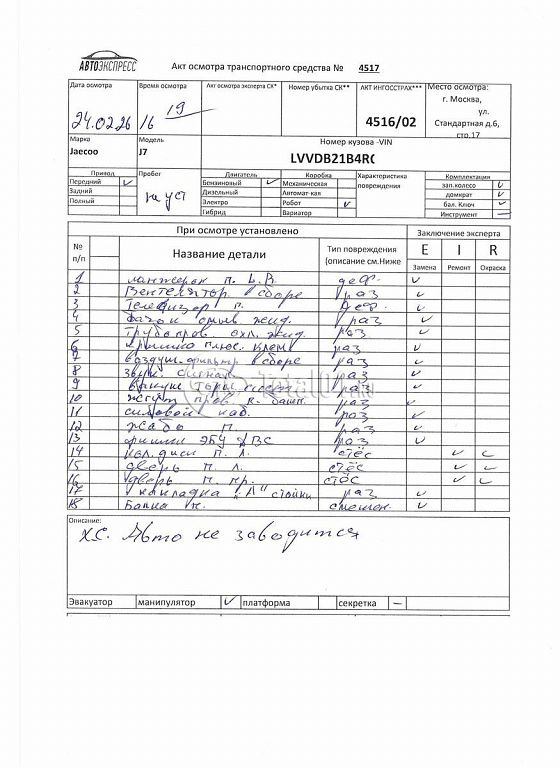 АВТОЭКСПРЕСС
Акт осмотра транспортного средства № 4517
Дата осмотра Время осмотра Акт осмотра эксперта СК* Номер убытка СК** АКТ ИНГОССТРАХ*** Место осмотра:
24.02.26 16 19 4516/02 г. Москва,
ул.
Стандартная д.6,
стр.17
Марка Модель Номер кузова -VIN
Jaecoo J7 LVVDB21B4R
Привод Пробег Двигатель Коробка Характеристика повреждения Комплектация
Передний ✓ Бензиновый ✓ Механическая зап.колесо ✓
Задний Дизельный Автомат-кая домкрат ✓
Полный Электро Робот ✓ бал. Ключ ✓
Гибрид Вариатор Инструмент —
не уст
При осмотре установлено Заключение эксперта
№ п/п Название детали Тип повреждения (описание см.Ниже E I R
Замена Ремонт Окраска
1 лонжерон п. деф. ✓
2 Вентелятор в сборе раз ✓
3 Телевизор п. деф. ✓
4 Бачок омыв жид. раз ✓
5 Трубопров. охл. жид. раз ✓
6 плюс. клем раз ✓
7 воздуш. фильтр в сборе раз ✓
8 звук. сигнал раз ✓
9 раз ✓
10 жгут пров. раз ✓
11 силовой каб. раз ✓
12 жабо п. раз ✓
13 фишки ЭБУ ДВС раз ✓
14 п. л. стёс ✓ ✓
15 дверь п. л. стёс ✓ ✓
16 дверь п. пр. стёс ✓ ✓
17 накладка "А" стойки раз ✓
18 Балка п. смещен. ✓
Описание:
Х.С. Авто не заводится
Эвакуатор манипулятор ✓ платформа секретка —